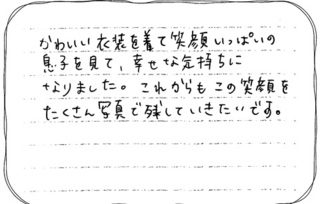 かわいい衣装を着て笑顔いっぱいの
息子を見て、幸せな気持ちに
なりました。これからもこの笑顔を
たくさん写真で残していきたいです。